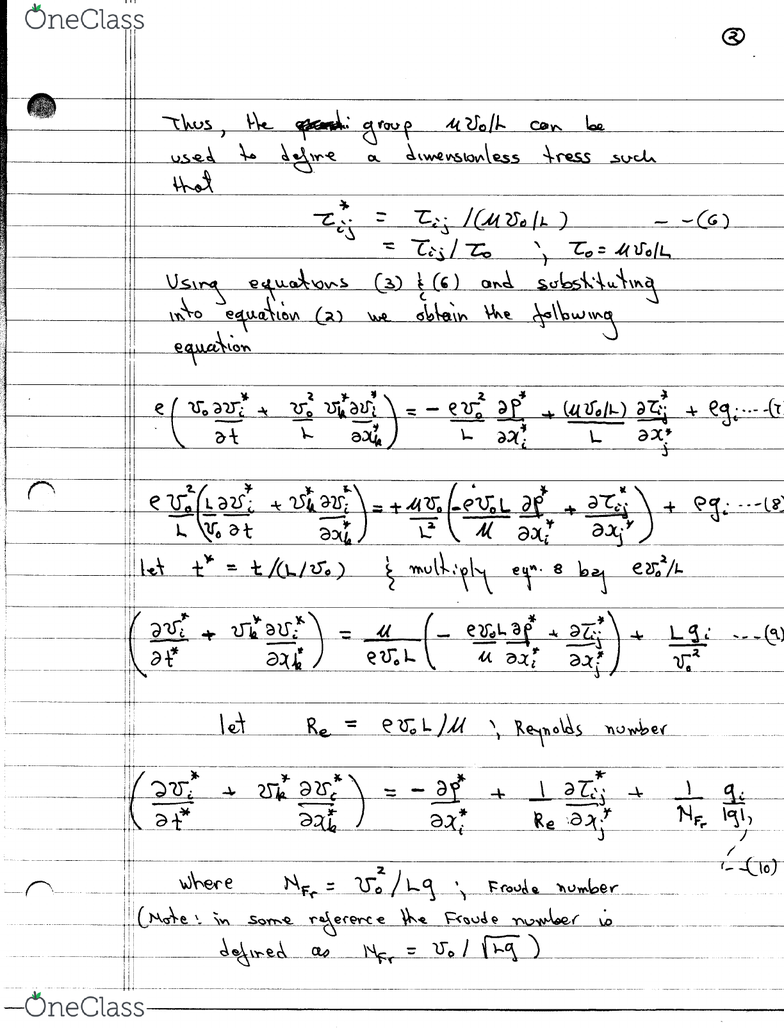 OneClass
②
Thus, the group μv₀/L can be
used to define a dimensionless tress such
that
τ*ᵢⱼ = τᵢⱼ /(μv₀/L) - -(6)
= τᵢⱼ/τ₀ ; τ₀ = μv₀/L
Using equations (3) & (6) and substituting
into equation (2) we obtain the following
equation
ρ( v₀∂vᵢ*/∂t + v₀²/L vₖ*∂vᵢ*/∂xₖ* ) = - ρv₀²/L ∂p*/∂xᵢ* + (μv₀/L)/L ∂τᵢⱼ*/∂xⱼ* + ρgᵢ ----(7
ρv₀²/L ( L/v₀ ∂vᵢ*/∂t + vₖ* ∂vᵢ*/∂xₖ* ) = + μv₀/L² ( -ρv₀L/μ ∂p*/∂xᵢ* + ∂τᵢⱼ*/∂xⱼ* ) + ρgᵢ ----(8
let t* = t/(L/v₀) & multiply eqn. 8 by ρv₀²/L
( ∂vᵢ*/∂t* + vₖ* ∂vᵢ*/∂xₖ* ) = μ/ρv₀L ( - ρv₀L/μ ∂p*/∂xᵢ* + ∂τᵢⱼ*/∂xⱼ* ) + Lgᵢ/v₀² ---(9)
let Re = ρv₀L/μ ; Reynolds number
( ∂vᵢ*/∂t* + vₖ* ∂vᵢ*/∂xₖ* ) = - ∂p*/∂xᵢ* + 1/Re ∂τᵢⱼ*/∂xⱼ* + 1/N_Fr gᵢ/|g|,
---(10)
where N_Fr = v₀²/Lg ; Froude number
(Note: in some reference the Froude number is
defined as N_Fr = v₀ / √Lg )
OneClass OneClass